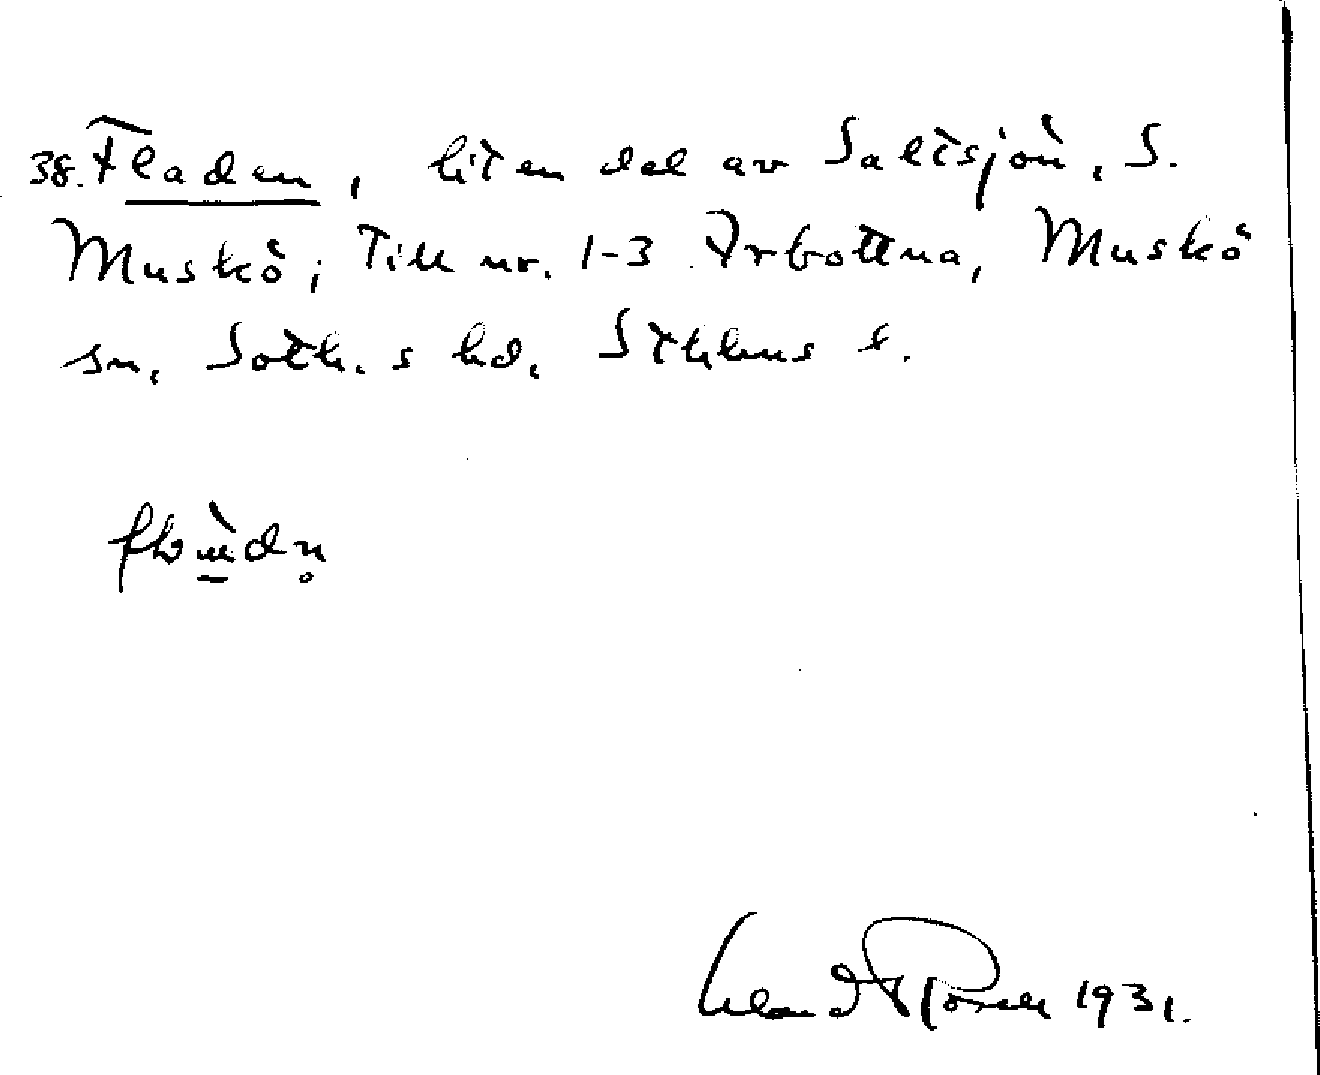 38. Fladen, liten del av Saltsjön, S.
Muskö; Till nr. 1-3 Arbottna, Muskö
sn, Soth. s hd, Sthlms l.
1931.